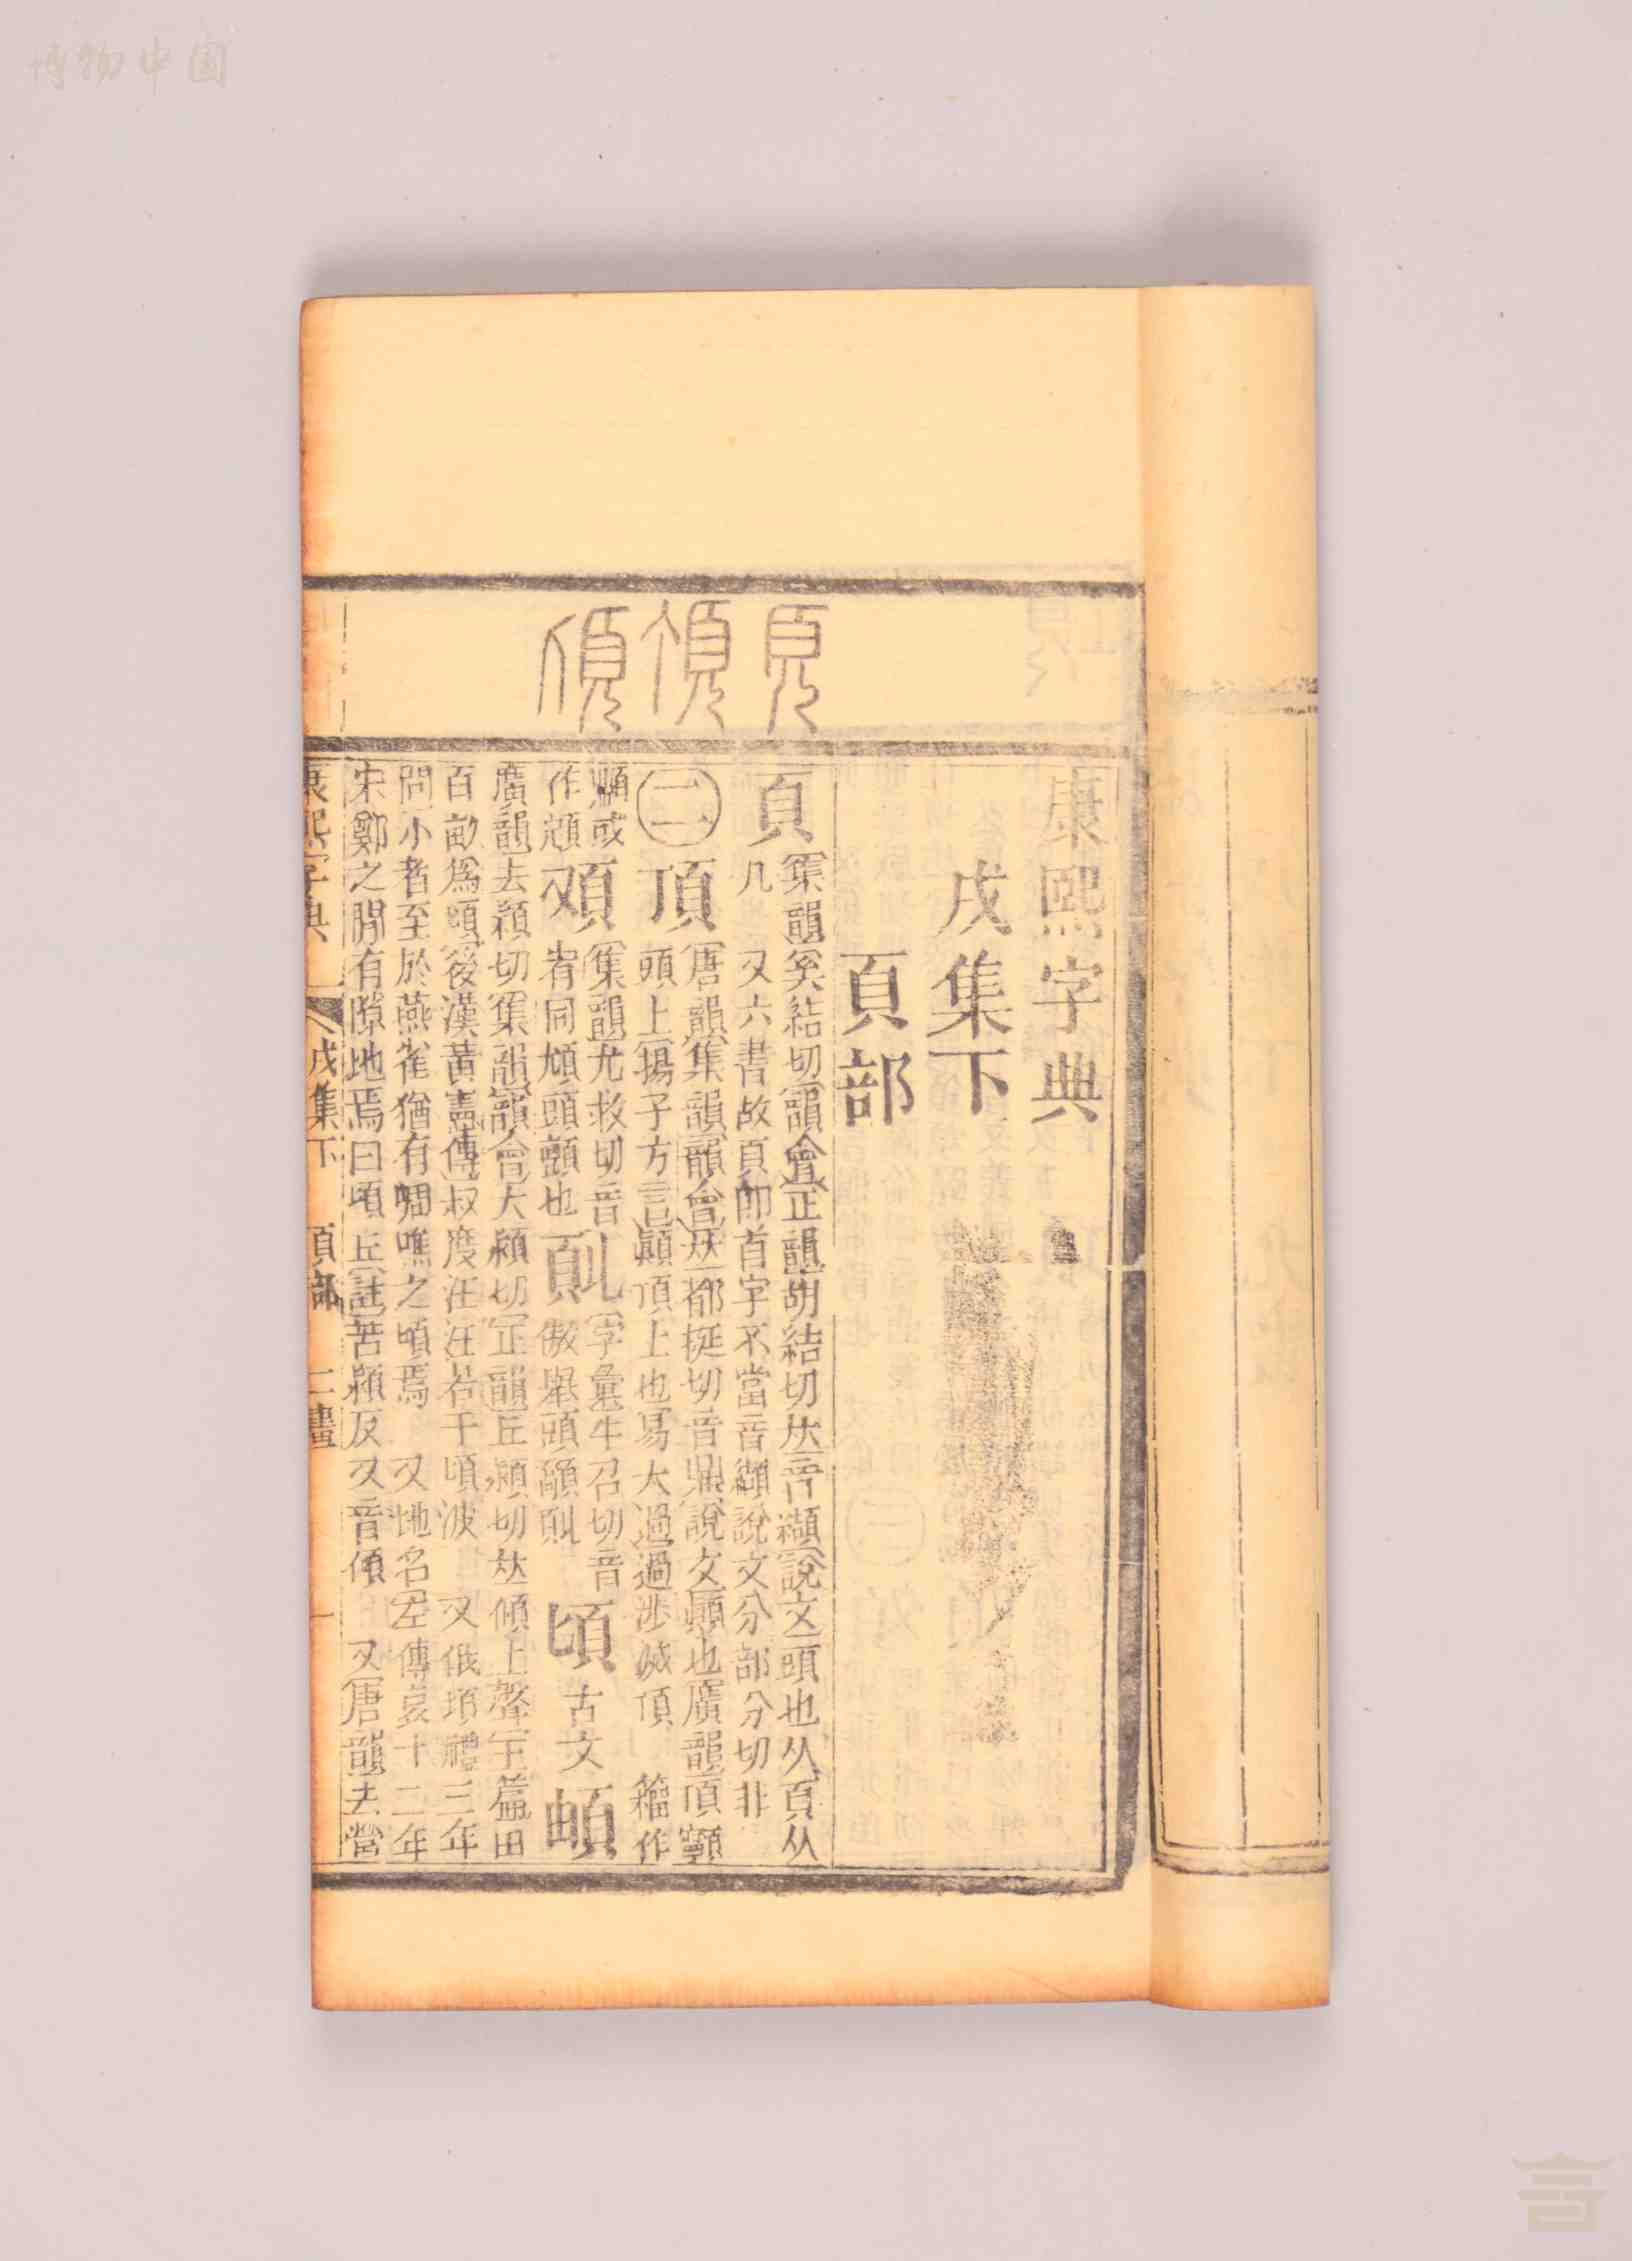 博物中國
頁頂頃
康熙字典
戌集下
頁部
頁
集韻奚結切韻會正韻胡結切𠀤音纈說文頭也从頁从
几 又六書故頁卽首字不當音纈說文分部分切非
二 頂
唐韻集韻韻會𠀤都挺切音鼎說文顚也廣韻頂𩕳
頭上揚子方言顚頂上也易大過過涉滅頂 籀作
顁或
作𩠑 頄
集韻尤救切音
宥同頄頭顫也 𩑋
字彙牛召切音
傲舉頭顤𩑋 頃 古文 𩒜
廣韻去潁切集韻韻會犬潁切正韻丘潁切𠀤傾上聲玉篇田
百畝爲頃後漢黃憲傳叔度汪汪若千頃波 又俄頃禮三年
問小者至於燕雀猶有啁噍之頃焉 又地名左傳哀十二年
宋鄭之閒有隙地焉曰頃丘註苦潁反又音傾 又唐韻去營
康熙字典 戌集下 頁部 二畫 一